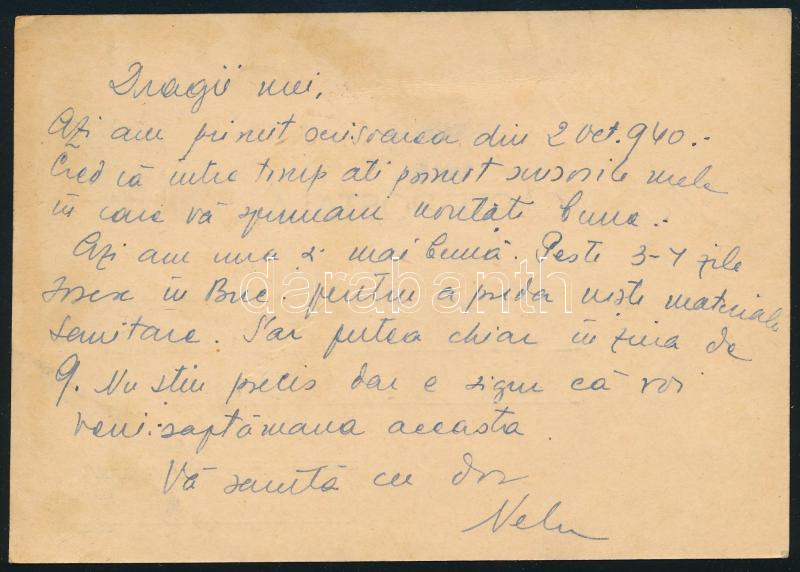 Dragii mei,
Azi am primit scrisoarea din 2 Oct. 940.-
Cred că între timp ati primit scrisorile mele
în care vă spuneam noutăti bune.-
Azi am una și mai bună. Peste 3-4 zile
sosesc în Buc. pentru a preda niste materiale
sanitare. S'ar putea chiar în ziua de
9. Nu stiu precis dar e sigur că voi
veni săptămana aceasta.
Vă sărută cu dor
Nelu
darabanth.com